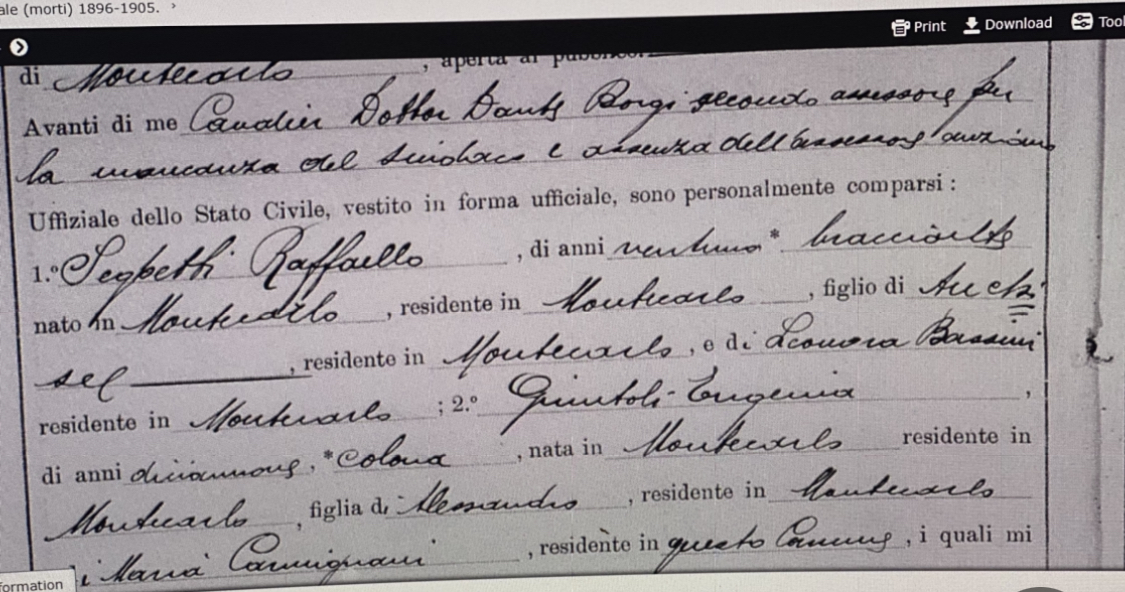 ale (morti) 1896-1905.
Print Download Tool
di Montecarlo, aperta al pubblico.
Avanti di me Cavalier Dottor Dante Borgi secondo assessore per
la mancanza del Sindaco e assenza dell'assessore anziano
Uffiziale dello Stato Civile, vestito in forma ufficiale, sono personalmente comparsi :
1.º Seghetti Raffaello, di anni ventuno * bracciante
nato in Montecarlo, residente in Montecarlo, figlio di
residente in Montecarlo, e di Leonora Bassini
residente in Montecarlo ; 2.º Quintoli Eugenia,
di anni diciannove, * colona, nata in Montecarlo residente in
Montecarlo, figlia di Alessandro, residente in Montecarlo
di Maria Carmignani, residente in questo Comune, i quali mi
formation